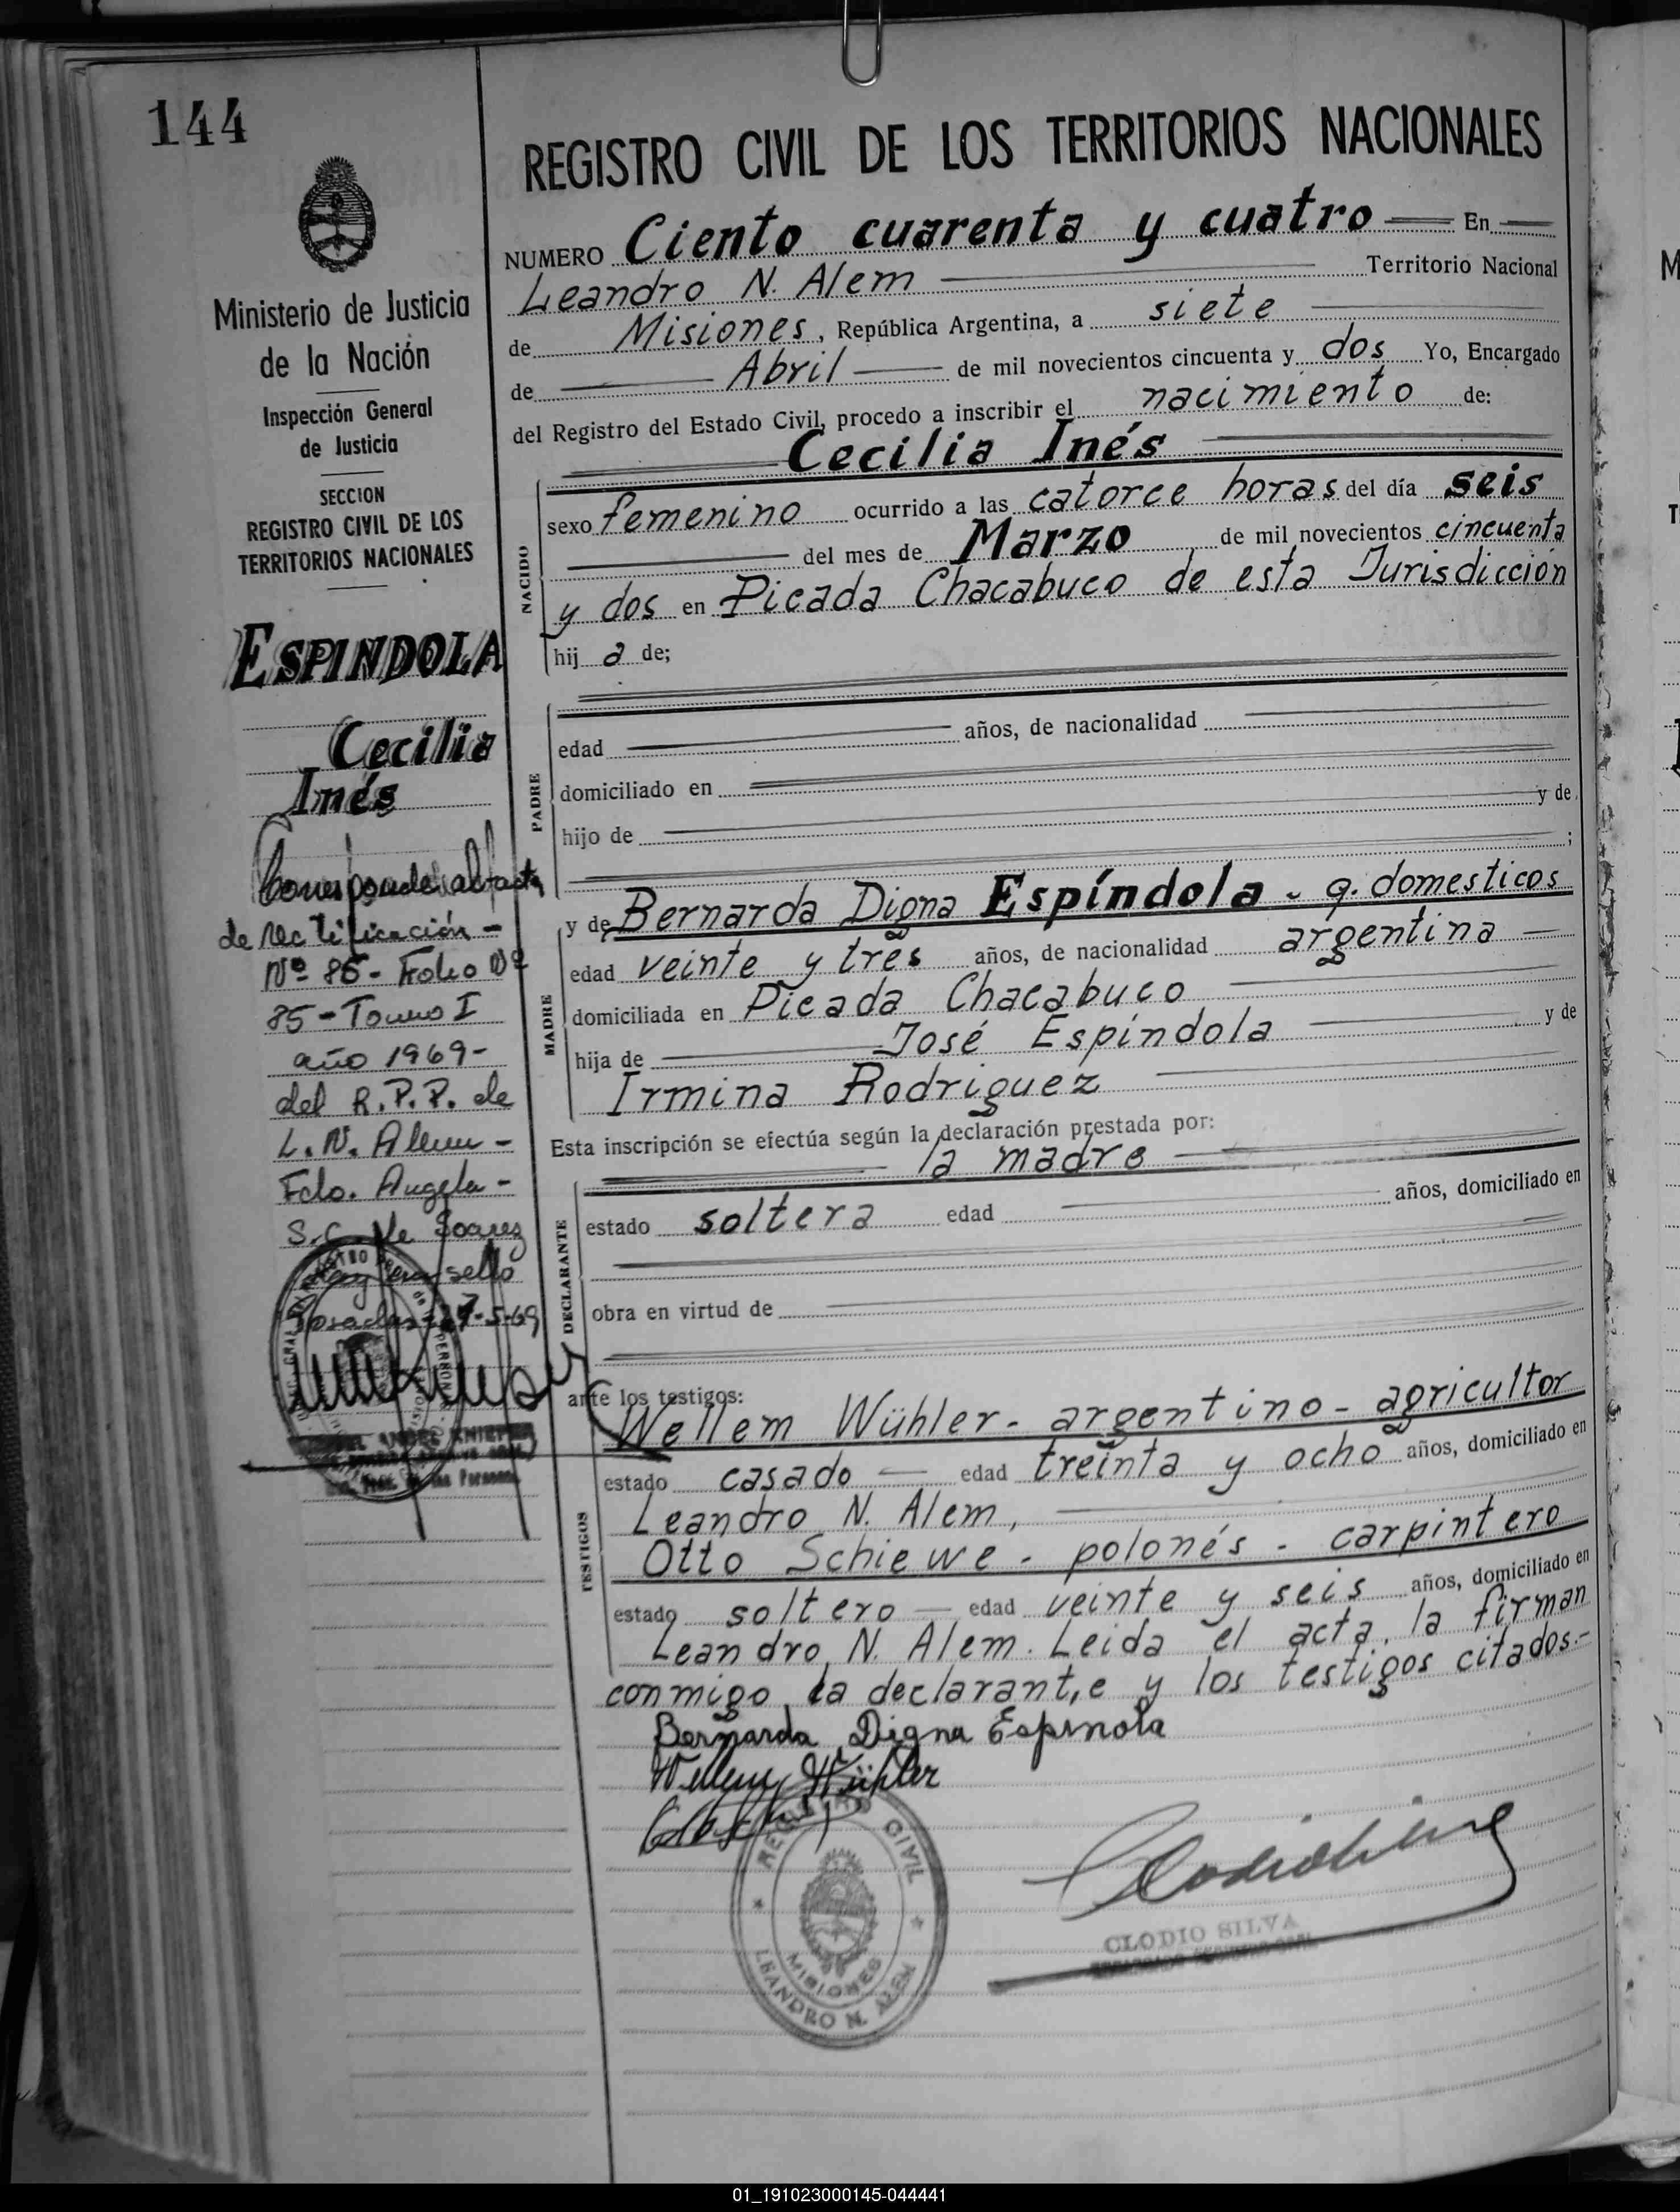 144
REGISTRO CIVIL DE LOS TERRITORIOS NACIONALES
NUMERO Ciento cuarenta y cuatro En
Leandro N. Alem Territorio Nacional
de Misiones, República Argentina, a siete
de Abril de mil novecientos cincuenta y dos Yo, Encargado
del Registro del Estado Civil, procedo a inscribir el nacimiento de:
Cecilia Inés
NACIDO
sexo femenino ocurrido a las catorce horas del día seis
del mes de Marzo de mil novecientos cincuenta
y dos en Picada Chacabuco de esta Jurisdicción
hij a de;
PADRE
edad años, de nacionalidad
domiciliado en
hijo de y de
;
MADRE
y de Bernarda Digna Espíndola - q. domesticos
edad veinte y tres años, de nacionalidad argentina
domiciliada en Picada Chacabuco
hija de José Espíndola y de
Irmina Rodriguez
Esta inscripción se efectúa según la declaración prestada por:
la madre
DECLARANTE
estado soltera edad años, domiciliado en
obra en virtud de
ante los testigos:
TESTIGOS
Wellem Wühler - argentino - agricultor
estado casado edad treinta y ocho años, domiciliado en
Leandro N. Alem,
Otto Schiewe - polonés - carpintero
estado soltero edad veinte y seis años, domiciliado en
Leandro N. Alem. Leida el acta, la firman
conmigo, la declarante y los testigos citados.-
Bernarda Digna Espinola
Wellem Wühler
REGISTRO CIVIL
MISIONES
LEANDRO N. ALEM
CLODIO SILVA
Ministerio de Justicia
de la Nación
Inspección General
de Justicia
SECCION
REGISTRO CIVIL DE LOS
TERRITORIOS NACIONALES
ESPINDOLA
Cecilia
Inés
Corresponde al acta
de rectificación -
Nº 86 - Folio Nº
85 - Tomo I
año 1969 -
del R.P.P. de
L. N. Alem -
Fdo. Angela -
S. C. de Soarez
Hay un sello
Posadas 27-5-69
01_191023000145-044441